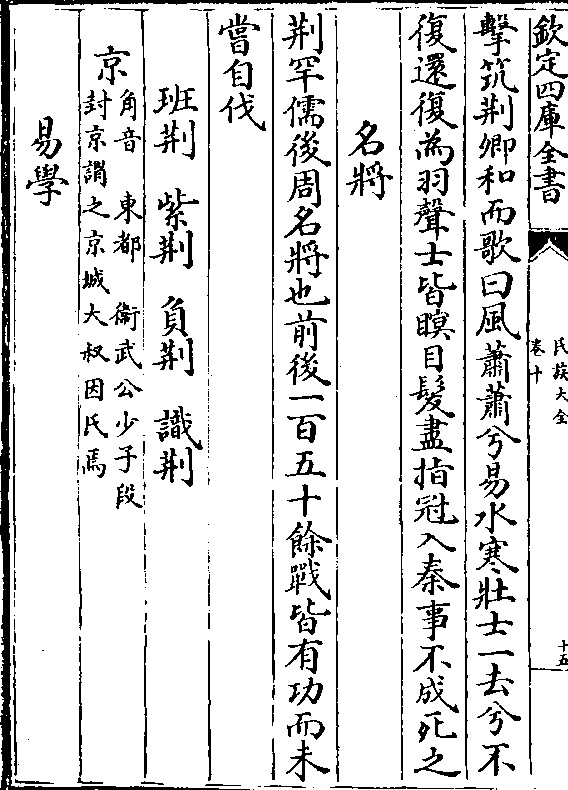 欽定四庫全書
氏族大全
卷十
十五
擊筑荆卿和而歌曰風蕭蕭兮易水寒壯士一去兮不
復還復為羽聲士皆瞋目髮盡指冠入秦事不成死之
名將
荆罕儒後周名將也前後一百五十餘戰皆有功而未
嘗自伐
班荆　紫荆　負荆　識荆
京
角音　東都　衞武公少子段
封京謂之京城大叔因氏焉
易學